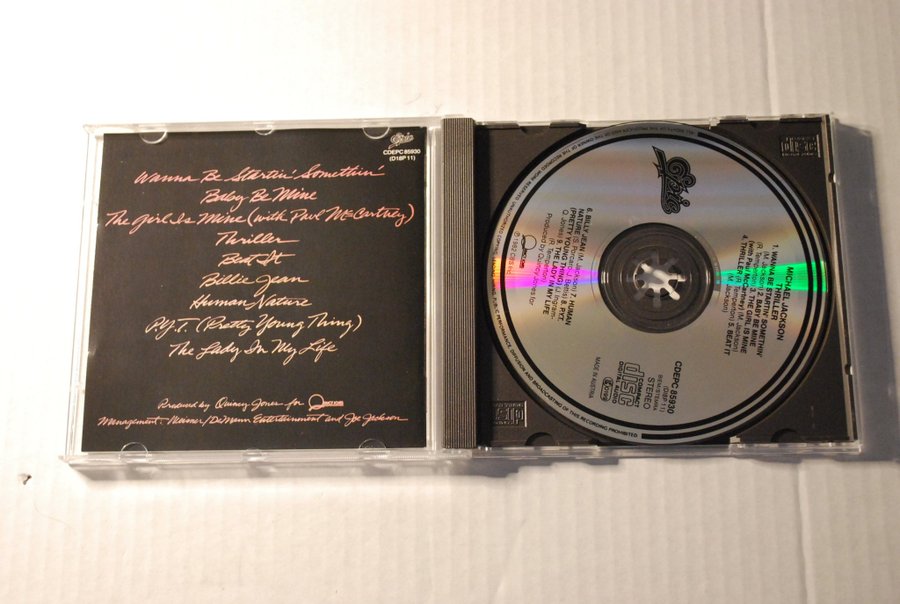 Epic
CDEPC 85930
(D18P 11)
Wanna Be Startin' Somethin'
Baby Be Mine
The Girl Is Mine (with Paul McCartney)
Thriller
Beat It
Billie Jean
Human Nature
P.Y.T. (Pretty Young Thing)
The Lady In My Life
Produced by Quincy Jones for
Management: Weisner/DeMann Entertainment and Joe Jackson
Epic
MICHAEL JACKSON
THRILLER
1. WANNA BE STARTIN' SOMETHIN'
(M. Jackson) 2. BABY BE MINE
(R. Temperton) 3. THE GIRL IS MINE
(with Paul McCartney) (M. Jackson)
4. THRILLER (R. Temperton) 5. BEAT IT
(M. Jackson)
6. BILLY JEAN (M. Jackson) 7. HUMAN
NATURE (S. Porcaro-J. Bettis) 8. P.Y.T.
(PRETTY YOUNG THING) (J. Ingram-
Q. Jones) 9. THE LADY IN MY LIFE
(R. Temperton)
Produced by Quincy Jones for
℗ 1982 CBS
CDEPC 85930
(D18P 11)
BIEM/STEMRA
STEREO
COMPACT
disc
DIGITAL AUDIO
MADE IN AUSTRIA
PUBLIC PERFORMANCE, DIFFUSION AND BROADCASTING OF THIS RECORDING PROHIBITED
disc
disc